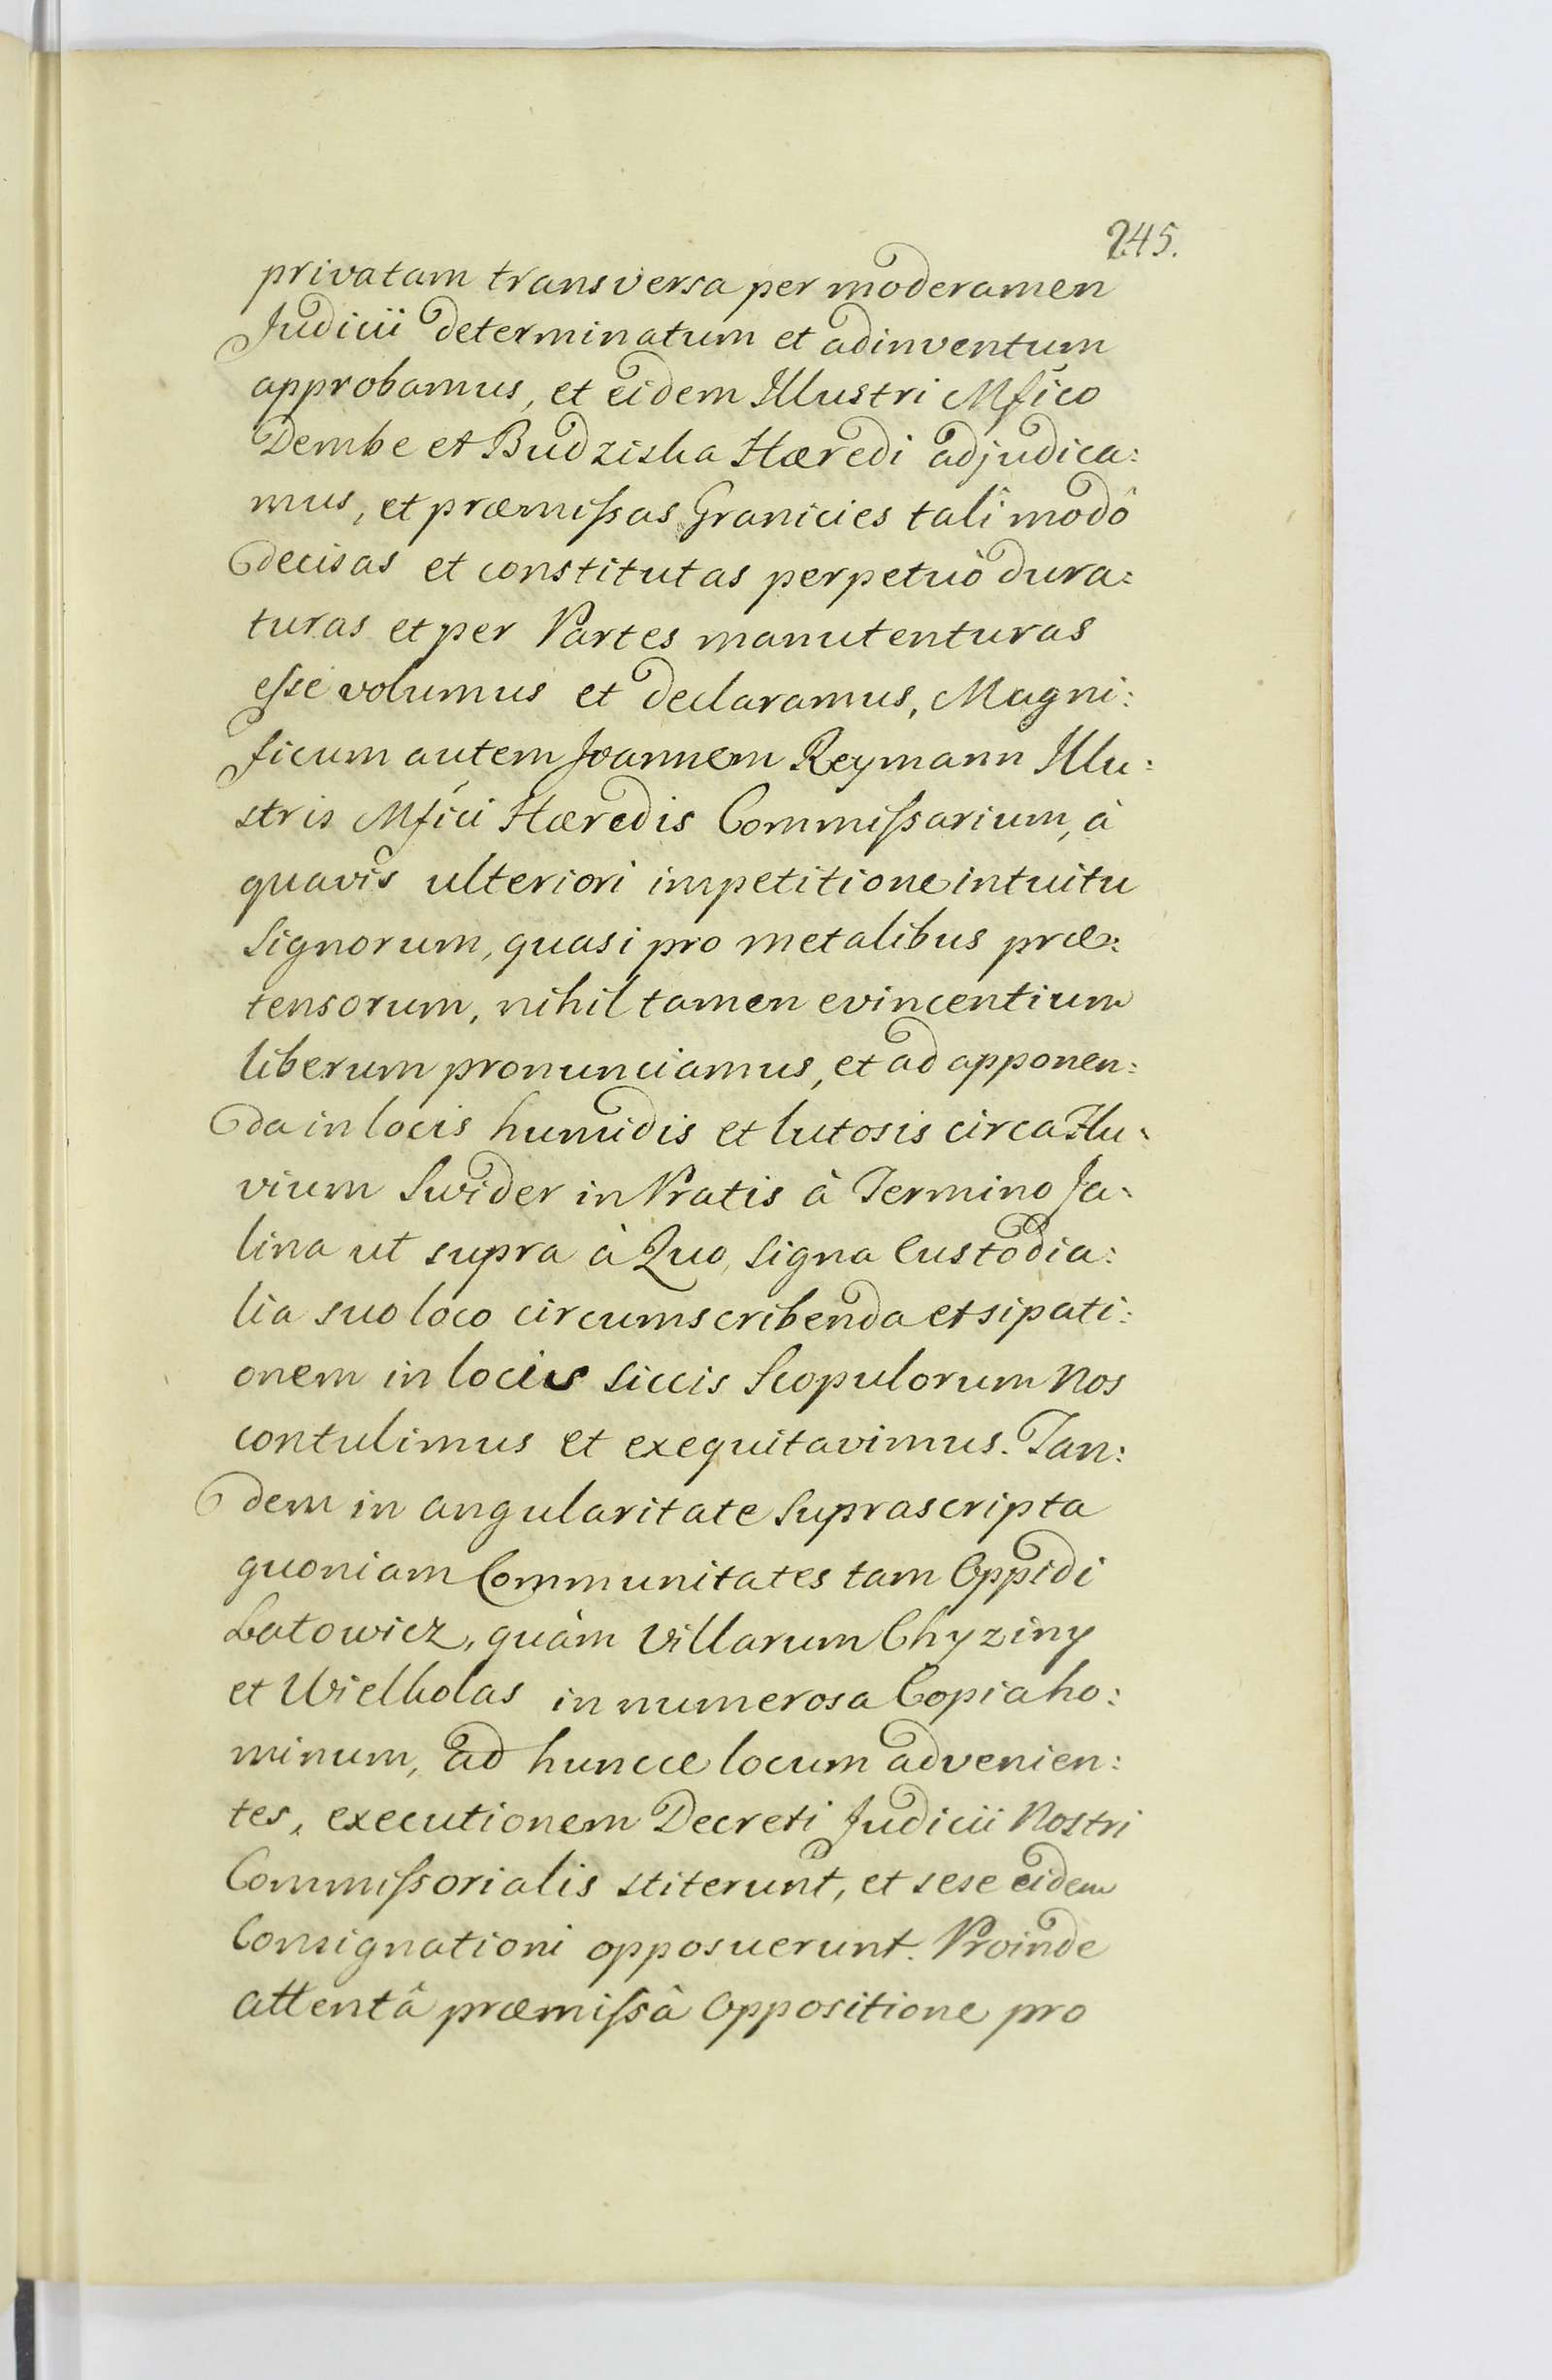 245.
privatam transversa per moderamen
Judicii determinatum et adinventum
approbamus, et eidem Illustri Mfico
Dembe et Budziska Hæredi adjudica:
mus, et præmissas Granicies talî modô
decisas et constitutas perpetuò dura:
turas et per Partes manutenturas
esse volumus et declaramus, Magni:
ficum autem Joannem Reymann Illu:
stris Mfici Hæredis Commissarium, à
quavis ulteriori impetitione intuitu
Signorum, quasi pro metalibus præ:
tensorum, nihil tamen evincentium
liberum pronunciamus, et ad apponen:
da in locis humidis et lutosis circa Flu:
vium Swider in Pratis à Termino Ja:
lina ut supra à Quo, Signa Custodia:
lia suo loco circumscribenda et sipati:
onem in locis siccis Scopulorum Nos
contulimus et exequitavimus. Tan:
dem in angularitate suprascripta
quoniam Communitates tam Oppidi
Latowicz, quàm Villarum Chyziny
et Wielkolas in numerosa Copia ho:
minum, ad huncce locum advenien:
tes, executionem Decreti Judicii Nostri
Commissorialis stiterunt, et sese eidem
Consignationi opposuerunt. Proinde
attentâ præmissâ Oppositione pro